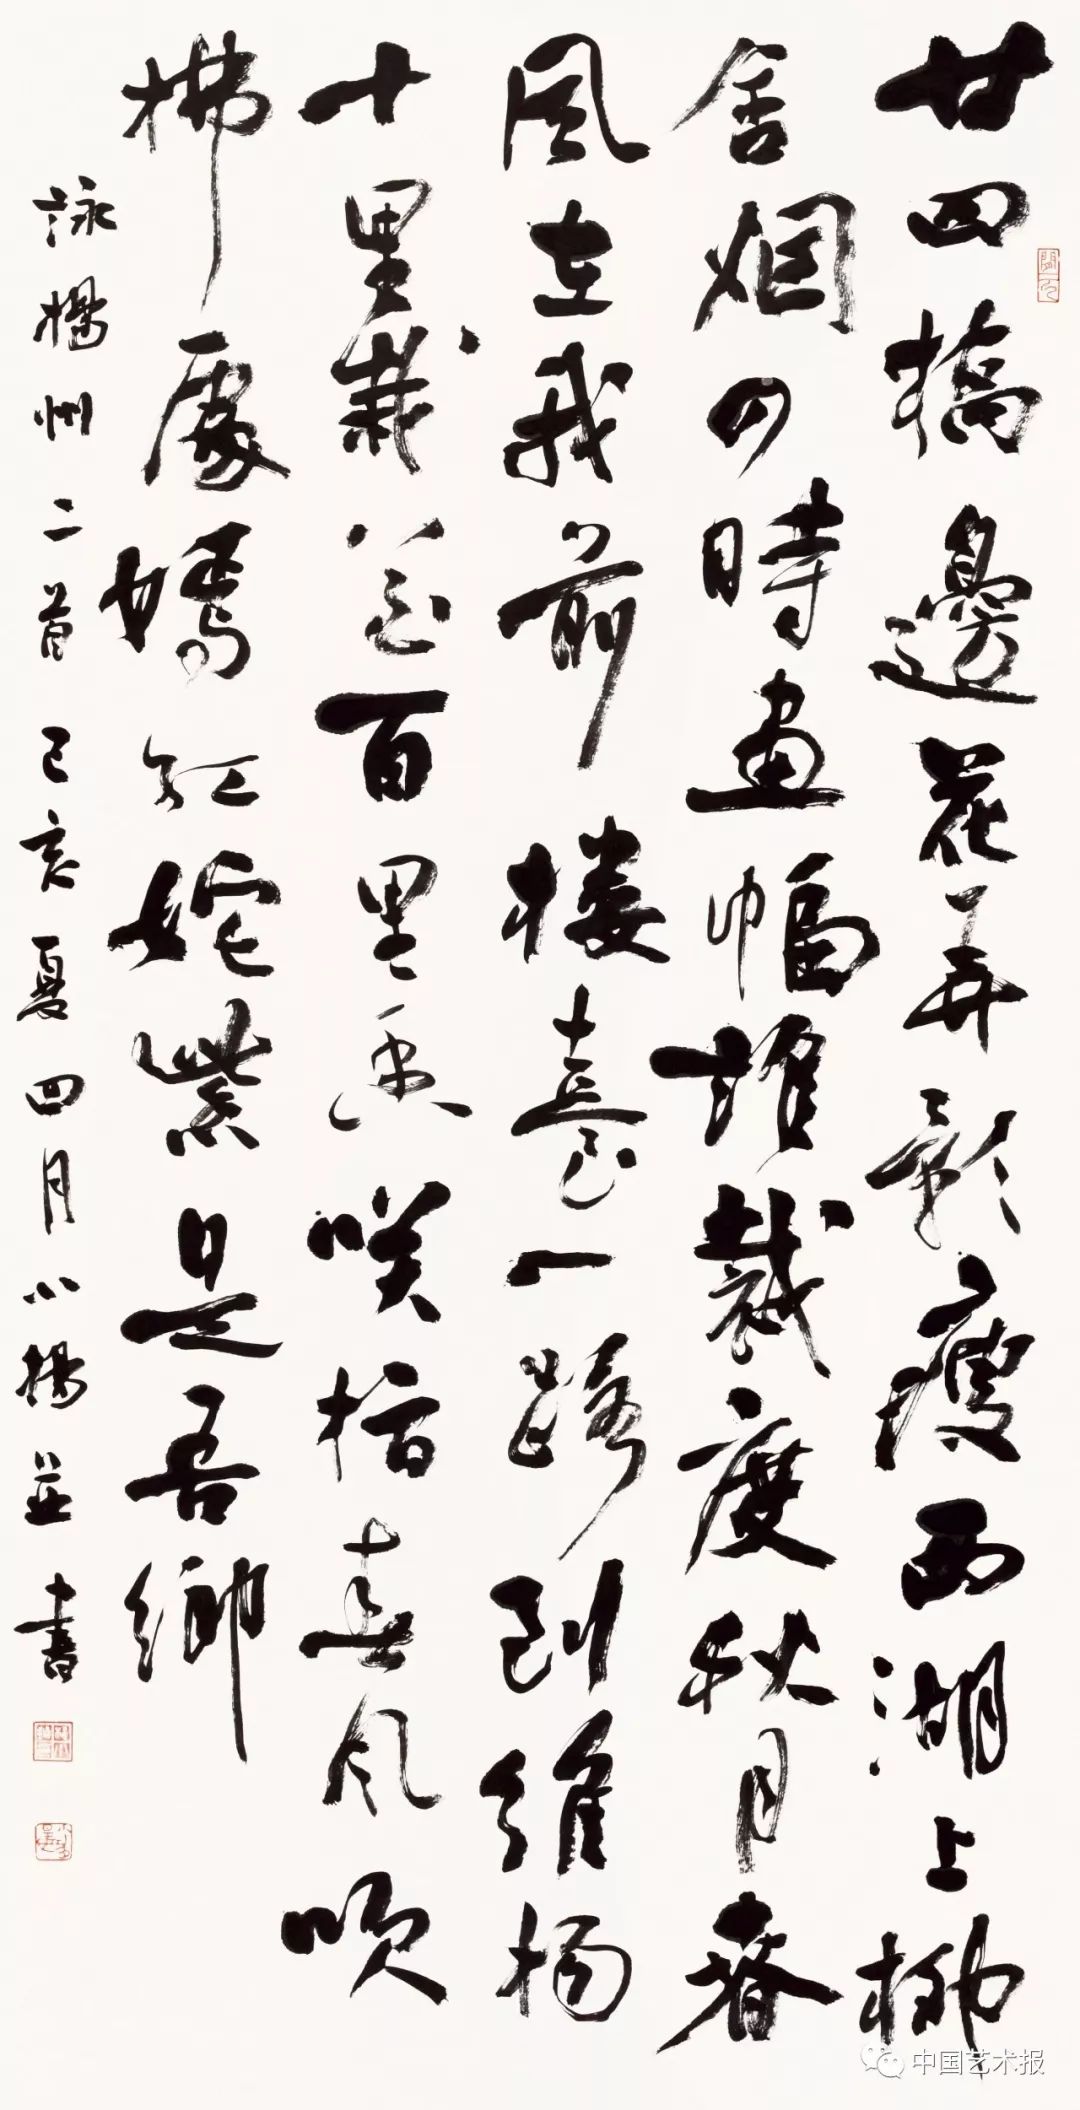 廿四橋邊花弄影瘦西湖上柳
含烟四時畫幅誰裁度秋月春
風在我前樓臺一路到維揚
十里栽花百里香笑指春風吹
拂處嫣紅姹紫是吾鄉
詠揚州二首己亥夏四月小揚並書
中国艺术报